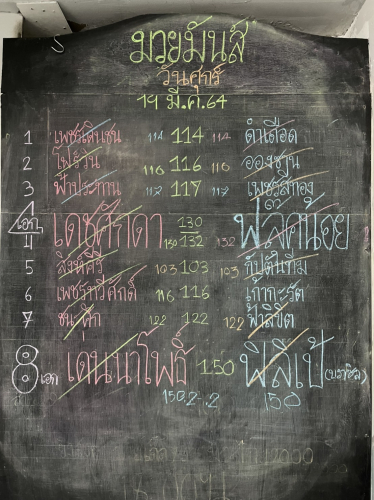 มวยมันส์
วันศุกร์
19 มี.ค.64
1 เพชรเดินชน 114 114 114 ดำเดือด
2 โฟร์วัน 116 116 116 อองชาน
3 ฟ้าประทาน 117 117 117 เพชรสีทอง
เอก 4 เดชศักดา 130 130 132 132 ฟลุ๊คน้อย
5 สิงห์คีรี 103 103 103 กัปตันทีม
6 เพชรทวีศักดิ์ 116 116 เก้ากะรัต
7 122 122 122 ฟ้าลิขิต
8 เอก เดนนาโพธิ์ 150 ฟิลิเป้ (บราซิล)
150.2-.2 150